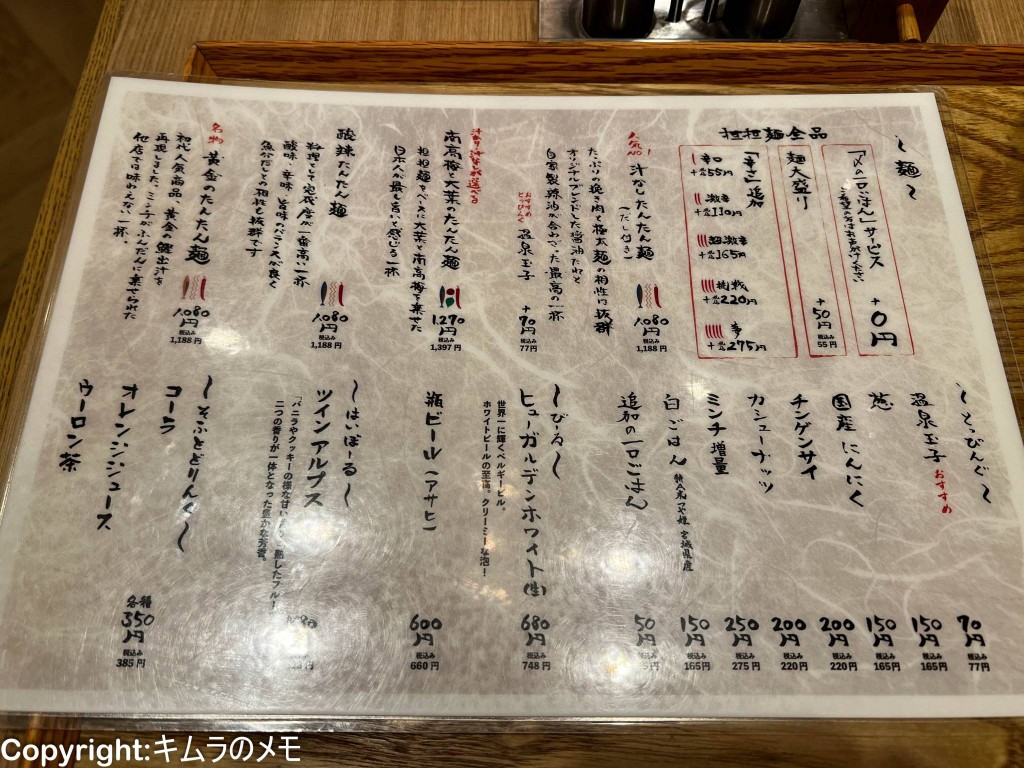 〜麺〜
担担麺全品
「〆の一口ごはん」サービス +0円
麺大盛り +50円 税込み 55円
「辛さ」追加
辛口 +税込55円
激辛 +税込110円
超激辛 +税込165円
挑戦 +税込220円
夢 +税込275円
人気NO.1
汁なしたんたん麺(だし付き) 1,080円 税込み 1,188円
たっぷりの挽き肉と極太麺の相性は抜群
オリジナルブレンドした醤油だれと
自家製辣油が合わさった最高の一杯
おすすめとっぴんぐ 温泉玉子 +70円 税込み 77円
汁あり汁なし選べる
南高梅と大葉のたんたん麺 1,270円 税込み 1,397円
担担麺をベースに大葉と南高梅を乗せた
日本人が最も旨いと感じる一杯
酸辣たんたん麺 1,080円 税込み 1,188円
料理として完成度が一番高い一杯
酸味・辛味・旨味のバランスが良く
魚介だしとの相性も抜群です
名物 黄金のたんたん麺 1,080円 税込み 1,188円
初代人気商品、黄金の鰹出汁を
再現しました。ミンチがふんだんに乗せられた
他店では味わえない一杯。
〜とっぴんぐ〜
温泉玉子 おすすめ 70円 税込み 77円
葱 150円 税込み 165円
国産にんにく 150円 税込み 165円
チンゲンサイ 200円 税込み 220円
カシューナッツ 200円 税込み 220円
ミンチ増量 250円 税込み 275円
白ごはん 特A米つや姫 宮城県産 150円 税込み 165円
追加の一口ごはん 50円 税込み
〜びーる〜
ヒューガルデンホワイト(生) 680円 税込み 748円
世界一に輝くベルギービール。
ホワイトビールの至高。クリーミーな泡!
瓶ビール(アサヒ) 600円 税込み 660円
〜はいぼーる〜
ツインアルプス
「バニラやクッキーの様な甘い 熟したフルー!
二つの香りが一体となった豊かな芳香。
〜そふとどりんく〜
コーラ
オレンジジュース
ウーロン茶
各種 350円 税込み 385円
Copyright:キムラのメモ